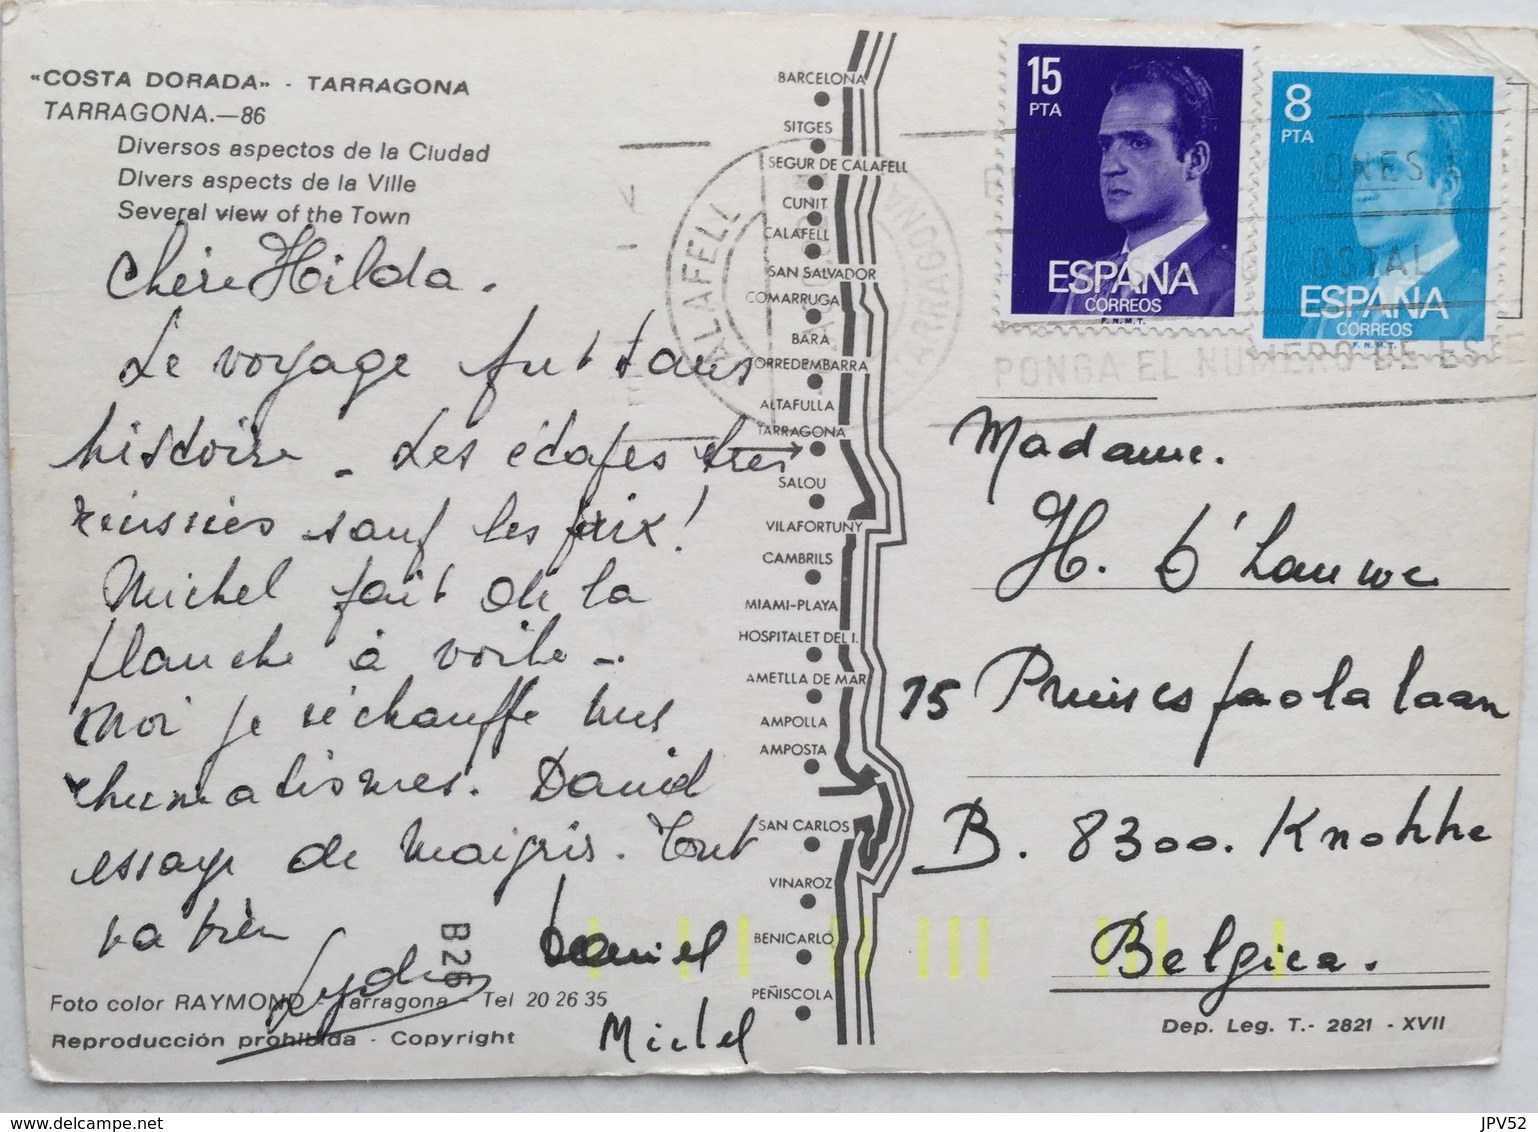 «COSTA DORADA» - TARRAGONA
TARRAGONA.—86
Diversos aspectos de la Ciudad
Divers aspects de la Ville
Several view of the Town
Chère Hilda.
Le voyage fut sans
histoire - Les étapes très
réussies sauf les prix!
Michel fait de la
planche à voile -.
Moi je réchauffe mes
rhumatismes. David
essaye de maigrir. Tout
va bien
Lydie
Daniel
Michel
B26
Foto color RAYMOND - Tarragona - Tel 20 26 35
Reproducción prohibida - Copyright
BARCELONA
SITGES
SEGUR DE CALAFELL
CUNIT
CALAFELL
SAN SALVADOR
COMARRUGA
BARÁ
TORREDEMBARRA
ALTAFULLA
TARRAGONA
SALOU
VILAFORTUNY
CAMBRILS
MIAMI-PLAYA
HOSPITALET DEL I.
AMETLLA DE MAR
AMPOLLA
AMPOSTA
SAN CARLOS
VINAROZ
BENICARLO
PEÑISCOLA
CALAFELL
TARRAGONA
15
PTA
ESPAÑA
CORREOS
F.N.M.T.
8
PTA
ESPAÑA
CORREOS
F.N.M.T.
POSTAL
PONGA EL NUMERO DE ESTE
Madame.
H. D'Hauwe
75 Prinses paola laan
B. 8300. Knokke
Belgica.
Dep. Leg. T.- 2821 - XVII
www.delcampe.net
JPV52